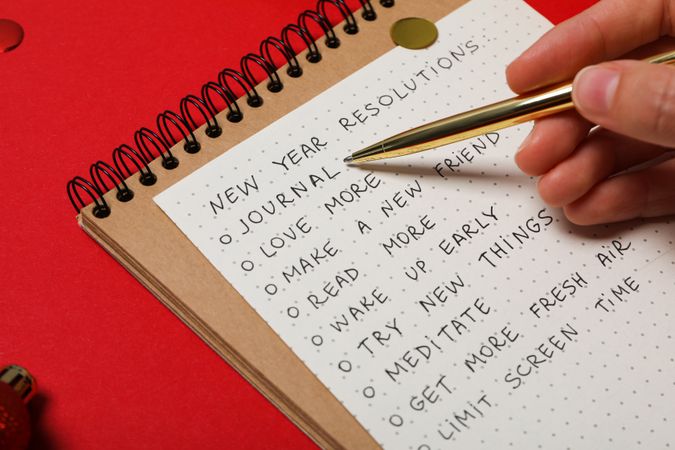 NEW YEAR RESOLUTIONS:
O JOURNAL
O LOVE MORE
O MAKE A NEW FRIEND
O READ MORE
O WAKE UP EARLY
O TRY NEW THINGS
O MEDITATE
O GET MORE FRESH AIR
O LIMIT SCREEN TIME